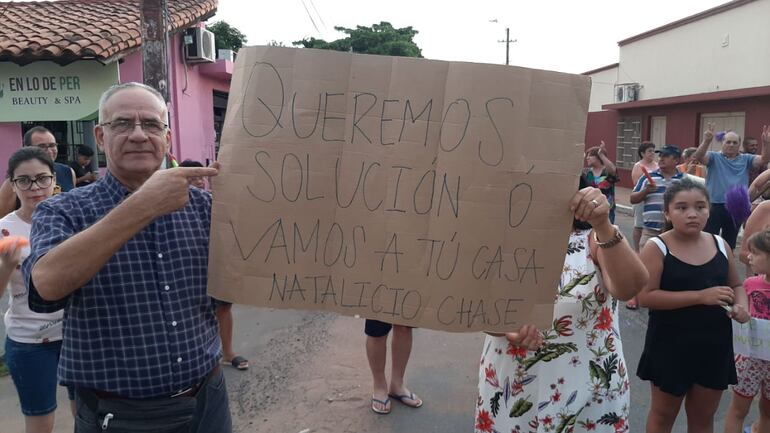 EN LO DE PER
BEAUTY & SPA
QUEREMOS
SOLUCIÓN Ó
VAMOS A TÚ CASA
NATALICIO CHASE